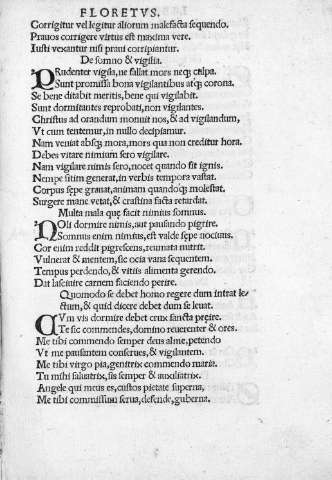 FLORETVS.
Corrigitur vel legitur aliorum malefacta sequendo.
Prauos corrigere virtus est maxima vere.
Iusti vexantur nisi praui corripiantur.
De somno & vigilia.
PRudenter vigila, ne fallat mors neq; culpa.
Sunt promissa bona vigilantibus atq; corona.
Se bene ditabit meritis, bene qui vigilabit.
Sunt dormitantes reprobati, non vigilantes.
Christus ad orandum monuit nos, & ad vigilandum,
Vt cum tentemur, in nullo decipiamur.
Nam veniat absq; mora, mors qua non creditur hora.
Debes vitare nimium sero vigilare.
Nam vigilare nimis sero, nocet quando fit ignis.
Nempe sitim generat, in verbis tempora vastat.
Corpus sepe grauat, animam quandoq; molestat.
Surgere mane vetat, & crastina facta retardat.
Multa mala quę facit nimius somnus.
NOli dormire nimis, aut pausando pigrire.
Somnus enim nimius, est valde sepe nociuus.
Cor enim reddit pigrescens, reumata nutrit.
Vulnerat & mentem, sic ocia vana sequentem.
Tempus perdendo, & vitiis alimenta gerendo.
Dat lasciuire carnem faciendo perire.
Quomodo se debet homo regere dum intrat le-
ctum, & quid dicere debet dum se leuat.
CVm vis dormire debet crux sancta preire.
Te sic commendes, domino reuerenter & ores.
Me tibi commendo semper deus alme, petendo
Vt me pausantem conserues, & vigilantem.
Me tibi virgo pia, genitrix commendo maria.
Tu mihi saluatrix, sis semper & auxiliatrix.
Angele qui meus es, custos pietate superna,
Me tibi commissum serua, defende, guberna.